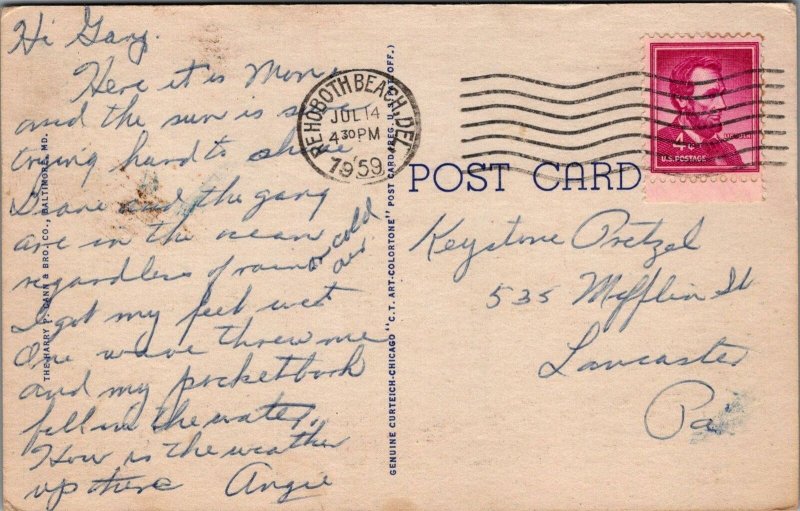 Hi Gang.
Here it is Mon.
and the sun is sure
trying hard to shine
Diane and the gang
are in the ocean
regardless of rain or cold
air.
I got my feet wet
One wave threw me
and my pocketbook
fell in the water.
How is the weather
up there Angie
THE HARRY P. CANN & BRO. CO., BALTIMORE, MD.
GENUINE CURTEICH-CHICAGO "C.T. ART-COLORTONE" POST CARD (REG. U.S. PAT. OFF.)
REHOBOTH BEACH, DEL.
JUL 14
4 30 PM
1959
POST CARD
4¢
U.S. POSTAGE
Keystone Pretzel
535 Mifflin St
Lancaster
Pa